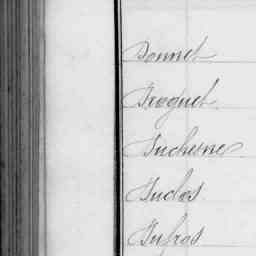 Donnet
Droguet
Duchesne
Duclos
Dufros